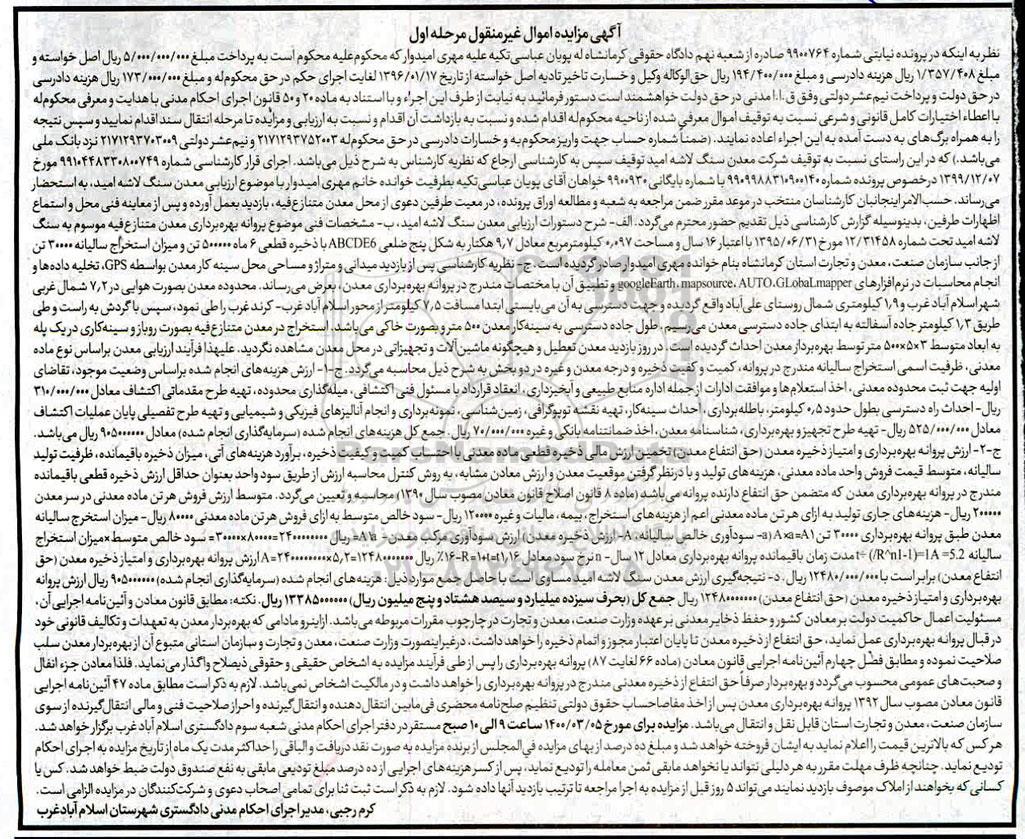 آگهی مزایده اموال غیرمنقول مرحله اول
نظر به اینکه در پرونده نیابتی شماره ۹۹۰۰۷۶۴ صادره از شعبه نهم دادگاه حقوقی کرمانشاه له پویان عباسی‌تکیه علیه مهری امیدوار که محکوم‌علیه محکوم است به پرداخت مبلغ ۵/۰۰۰/۰۰۰/۰۰۰ ریال اصل خواسته و
مبلغ ۱/۳۵۷/۴۰۸ ریال هزینه دادرسی و مبلغ ۱۹۴/۴۰۰/۰۰۰ ریال حق‌الوکاله وکیل و خسارت تاخیر تادیه اصل خواسته از تاریخ ۱۳۹۶/۰۱/۱۷ لغایت اجرای حکم در حق محکوم‌له و مبلغ ۱۷۳/۰۰۰/۰۰۰ ریال هزینه دادرسی
در حق دولت و پرداخت نیم‌عشر دولتی وفق ق.ا.ا مدنی در حق دولت خواهشمند است دستور فرمائید به نیابت از طرف این اجراء و با استناد به ماده ۲۰ و ۵۰ قانون اجرای احکام مدنی با هدایت و معرفی محکوم‌له
با اعطاء اختیارات کامل قانونی و شرعی نسبت به توقیف اموال معرفی شده از ناحیه محکوم‌له اقدام شده و نسبت به بازداشت آن اقدام و نسبت به ارزیابی و مزایده تا مرحله انتقال سند اقدام نمایید و سپس نتیجه
را به همراه برگ‌های به دست آمده به این اجراء اعاده نمایند. (ضمناً شماره حساب جهت واریز محکوم‌به و خسارات دادرسی در حق محکوم‌له ۲۱۷۱۲۹۳۷۵۲۰۰۳ و نیم‌عشر دولتی ۲۱۷۱۲۹۳۷۰۳۰۰۹ نزد بانک ملی
می‌باشد.) که در این راستای نسبت به توقیف شرکت معدن سنگ لاشه امید توقیف سپس به کارشناسی ارجاع که نظریه کارشناس به شرح ذیل می‌باشد. اجرای قرار کارشناسی شماره ۹۹۱۰۴۴۸۳۳۰۸۰۰۷۴۹ مورخ
۱۳۹۹/۱۲/۰۷ درخصوص پرونده شماره ۹۹۰۹۹۸۸۳۱۰۹۰۰۱۴۰ با شماره بایگانی ۹۹۰۰۹۳۰ خواهان آقای پویان عباسی‌تکیه بطرفیت خوانده خانم مهری امیدوار با موضوع ارزیابی معدن سنگ لاشه امید، به استحضار
می‌رساند. حسب‌الامر اینجانبان کارشناسان منتخب در موعد مقرر ضمن مراجعه به شعبه و مطالعه اوراق پرونده، در معیت طرفین دعوی از محل معدن متنازع‌فیه، بازدید بعمل آورده و پس از معاینه فنی محل و استماع
اظهارات طرفین، بدینوسیله گزارش کارشناسی ذیل تقدیم حضور محترم می‌گردد. الف- شرح دستورات ارزیابی معدن سنگ لاشه امید، ب- مشخصات فنی موضوع پروانه بهره‌برداری معدن متنازع‌فیه موسوم به سنگ
لاشه امید تحت شماره ۱۲/۳۱۴۵۸ مورخ ۱۳۹۵/۰۶/۳۱ با اعتبار ۱۶ سال و مساحت ۰٫۰۹۷ کیلومترمربع معادل ۹٫۷ هکتار به شکل پنج ضلعی ABCDE6 با ذخیره قطعی ۶ ماه ۵۰۰۰۰۰ تن و میزان استخراج سالیانه ۳۰۰۰۰ تن
از جانب سازمان صنعت، معدن و تجارت استان کرمانشاه بنام خوانده مهری امیدوار صادر گردیده است. ج- نظریه کارشناسی پس از بازدید میدانی و متراژ و مساحی محل سینه کار معدن بواسطه GPS، تخلیه داده‌ها و
انجام محاسبات در نرم‌افزارهای googleEarth، mapsource، AUTO،GLobaLmapper و تطبیق آن با مختصات مندرج در پروانه بهره‌برداری معدن، بعرض می‌رساند. محدوده معدن بصورت هوایی در ۷٫۲ شمال غربی
شهر اسلام آباد غرب و ۱٫۹ کیلومتری شمال روستای علی‌آباد واقع گردیده و جهت دسترسی به آن می‌بایستی ابتدا مسافت ۷٫۵ کیلومتر از محور اسلام آباد غرب- کرند غرب را طی نمود، سپس با گردش به راست و طی
طریق ۱٫۳ کیلومتر جاده آسفالته به ابتدای جاده دسترسی معدن می‌رسیم. طول جاده دسترسی به سینه‌کار معدن ۵۰۰ متر و بصورت خاکی می‌باشد. استخراج در معدن متنازع‌فیه بصورت روباز و سینه‌کاری در یک پله
به ابعاد متوسط ۳×۵×۵۰۰ متر توسط بهره‌بردار معدن احداث گردیده است. در روز بازدید معدن تعطیل و هیچگونه ماشین‌آلات و تجهیزاتی در محل معدن مشاهده نگردید. علیهذا فرآیند ارزیابی معدن براساس نوع ماده
معدنی، ظرفیت اسمی استخراج سالیانه مندرج در پروانه، کمیت و کیفیت ذخیره و درجه معدن و غیره در دو بخش به شرح ذیل محاسبه می‌گردد. ج-۱- ارزش هزینه‌های انجام شده براساس وضعیت موجود، تقاضای
اولیه جهت ثبت محدوده معدنی، اخذ استعلام‌ها و موافقت ادارات از جمله اداره منابع طبیعی و آبخیزداری، انعقاد قرارداد با مسئول فنی اکتشافی، میله‌گذاری محدوده، تهیه طرح مقدماتی اکتشاف معادل ۳۱۰/۰۰۰/۰۰۰
ریال- احداث راه دسترسی بطول حدود ۰٫۵ کیلومتر، باطله‌برداری، احداث سینه‌کار، تهیه نقشه توپوگرافی، زمین‌شناسی، نمونه‌برداری و انجام آنالیزهای فیزیکی و شیمیایی و تهیه طرح تفصیلی پایان عملیات اکتشاف
معادل ۵۲۵/۰۰۰/۰۰۰ ریال- تهیه طرح تجهیز و بهره‌برداری، شناسنامه معدن، اخذ ضمانتنامه بانکی و غیره ۷۰/۰۰۰/۰۰۰ ریال. جمع کل هزینه‌های انجام شده (سرمایه‌گذاری انجام شده) معادل ۹۰۵۰۰۰۰۰۰ ریال می‌باشد.
ج-۲- ارزش پروانه بهره‌برداری و امتیاز ذخیره معدن (حق انتفاع معدن) تخمین ارزش مالی ذخیره قطعی ماده معدنی با احتساب کمیت و کیفیت ذخیره، برآورد هزینه‌های آتی، میزان ذخیره باقیمانده، ظرفیت تولید
سالیانه، متوسط قیمت فروش واحد ماده معدنی، هزینه‌های تولید و با درنظر گرفتن موقعیت معدن و ارزش معادن مشابه، به روش کنترل محاسبه ارزش از طریق سود واحد بعنوان حداقل ارزش ذخیره قطعی باقیمانده
مندرج در پروانه بهره‌برداری معدن که متضمن حق انتفاع دارنده پروانه می‌باشد (ماده ۸ قانون اصلاح قانون معادن مصوب سال ۱۳۹۰) محاسبه و تعیین می‌گردد. متوسط ارزش فروش هر تن ماده معدنی در سر معدن
۲۰۰۰۰۰ ریال- هزینه‌های جاری تولید به ازای هر تن ماده معدنی اعم از هزینه‌های استخراج، بیمه، مالیات و غیره ۱۲۰۰۰۰ ریال- سود خالص متوسط به ازای فروش هر تن ماده معدنی ۸۰۰۰۰ ریال- میزان استخرج سالیانه
معدن ۳۰۰۰۰ تن A×a=A1 (a- سودآوری خالص سالیانه A- ارزش ذخیره معدن) ارزش سودآوری مرکب معدن- A1a= ریال ۲۴۰۰۰۰۰۰۰۰=۸۰۰۰۰×۳۰۰۰۰= سود خالص متوسط×میزان استخراج
سالیانه 5.2= A1=(1-R^n1)/) ÷t مدت زمان باقیمانده پروانه بهره‌برداری معادل ۱۲ سال- n نرخ سود معادل ۱۶٪- R=1+t=t1,16 ریال ۱۲۴۸۰۰۰۰۰۰۰=۵٫۲×۲۴۰۰۰۰۰۰۰۰=A ارزش پروانه بهره‌برداری و امتیاز ذخیره معدن (حق
انتفاع معدن) برابر است با ۱۲۴۸۰/۰۰۰/۰۰۰ ریال. د- نتیجه‌گیری ارزش معدن سنگ لاشه امید مساوی است با حاصل جمع موارد ذیل: هزینه‌های انجام شده (سرمایه‌گذاری انجام شده) ۹۰۵۰۰۰۰۰۰ ریال ارزش پروانه
بهره‌برداری و امتیاز ذخیره معدن (حق انتفاع معدن) ۱۲۴۸۰۰۰۰۰۰۰ ریال جمع کل (بحرف سیزده میلیارد و سیصد هشتاد و پنج میلیون ریال) ۱۳۳۸۵۰۰۰۰۰۰ ریال. نکته: مطابق قانون معادن و آئین‌نامه اجرایی آن،
مسئولیت اعمال حاکمیت دولت بر معادن کشور و حفظ ذخایر معدنی بر عهده وزارت صنعت، معدن و تجارت در چارچوب مقررات مربوطه می‌باشد. از اینرو مادامی که بهره‌بردار معدن به تعهدات و تکالیف قانونی خود
در قبال پروانه بهره‌برداری عمل نماید، حق انتفاع از ذخیره معدن تا پایان اعتبار مجوز و اتمام ذخیره را خواهد داشت، درغیراینصورت وزارت صنعت، معدن و تجارت و سازمان استانی متبوع آن از بهره‌بردار معدن سلب
صلاحیت نموده و مطابق فصل چهارم آئین‌نامه اجرایی قانون معادن (ماده ۶۶ لغایت ۸۷) پروانه بهره‌برداری را پس از طی فرآیند مزایده به اشخاص حقیقی و حقوقی ذیصلاح واگذار می‌نماید. فلذا معادن جزء انفال
و صحبت‌های عمومی محسوب می‌گردد و بهره‌بردار صرفاً حق انتفاع از ذخیره معدنی مندرج در پروانه بهره‌برداری را خواهد داشت و در مالکیت اشخاص نمی‌باشد. لازم به ذکر است مطابق ماده ۴۷ آئین‌نامه اجرایی
قانون معادن مصوب سال ۱۳۹۲ پروانه بهره‌برداری معدن پس از اخذ مفاصاحساب حقوق دولتی تنظیم صلح‌نامه محضری فی‌مابین انتقال‌دهنده و انتقال‌گیرنده و احراز صلاحیت فنی و مالی انتقال‌گیرنده از سوی
سازمان صنعت، معدن و تجارت استان قابل نقل و انتقال می‌باشد. مزایده برای مورخ ۱۴۰۰/۰۳/۰۵ ساعت ۹ الی ۱۰ صبح مستقر در دفتر اجرای احکام مدنی شعبه سوم دادگستری اسلام آباد غرب برگزار خواهد شد.
هر کس که بالاترین قیمت را اعلام نماید به ایشان فروخته خواهد شد و مبلغ ده درصد از بهای مزایده فی‌المجلس از برنده مزایده به صورت نقد دریافت و الباقی را حداکثر مدت یک ماه از تاریخ مزایده به اجرای احکام
تودیع نماید. چنانچه ظرف مهلت مقرر به هر دلیلی نتواند یا نخواهد مابقی ثمن معامله را تودیع نماید، پس از کسر هزینه‌های اجرایی از ده درصد مبلغ تودیعی مابقی به نفع صندوق دولت ضبط خواهد شد. کس یا
کسانی که بخواهند از املاک موصوف بازدید نمایند می‌تواند ۵ روز قبل از مزایده به اجرا مراجعه تا ترتیب بازدید آنها داده شود. لازم به ذکر است ثبت ثنا برای تمامی اصحاب دعوی و شرکت‌کنندگان در مزایده الزامی است.
کرم رجبی، مدیر اجرای احکام مدنی دادگستری شهرستان اسلام آبادغرب